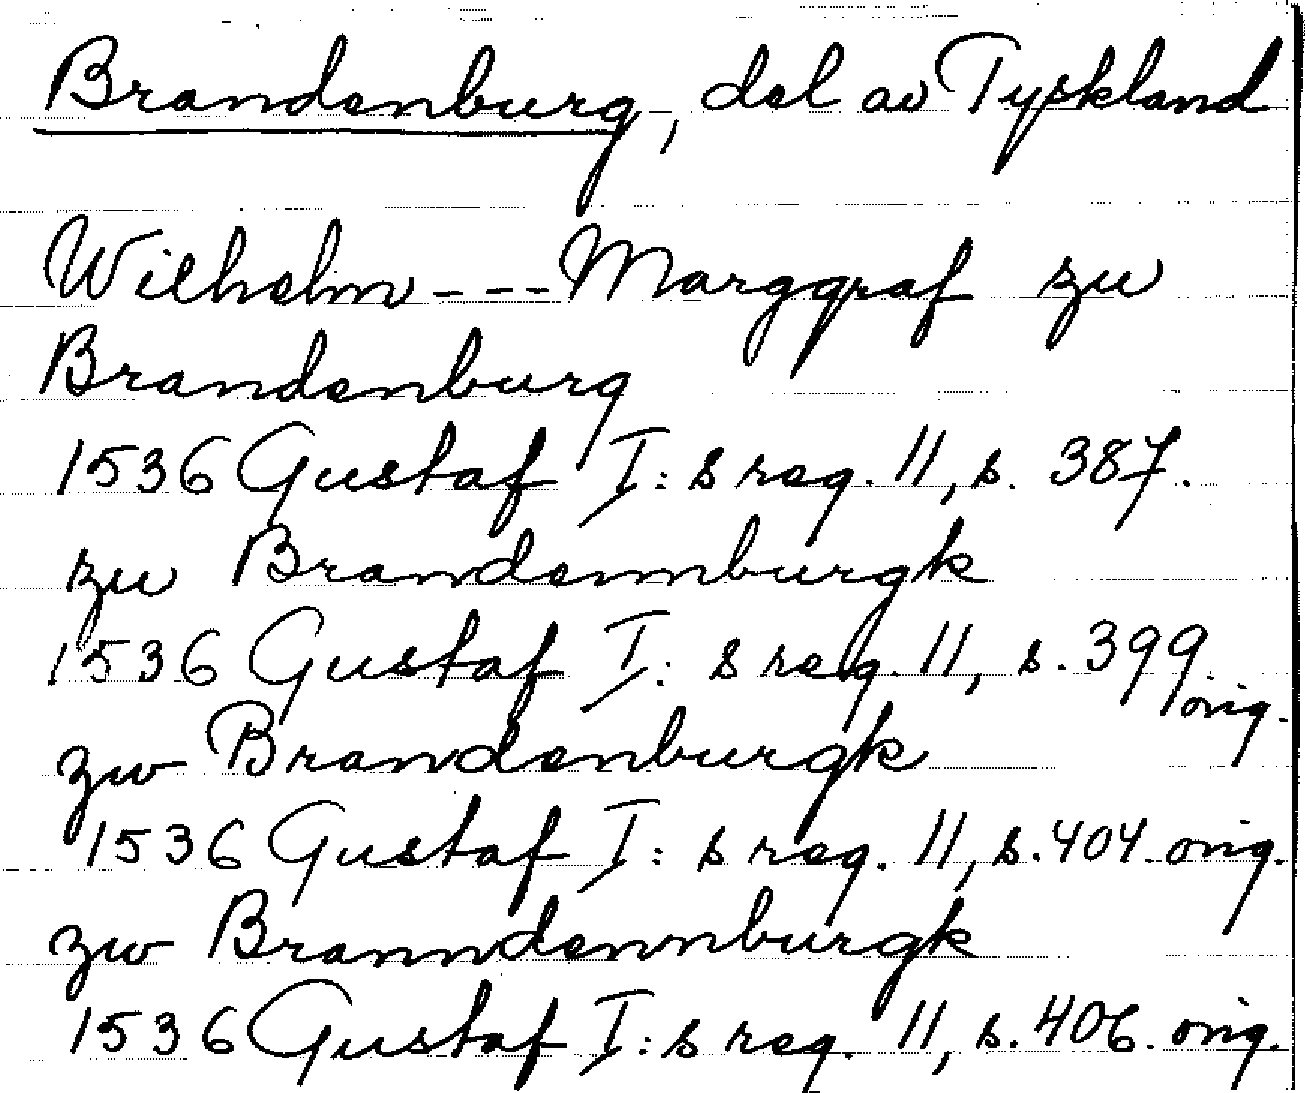 Brandenburg, del av Tyskland
Wilhelm --- Marggraf zu
Brandenburg
1536 Gustaf I: s reg. 11, s. 387.
zu Brandennburgk
1536 Gustaf I: s reg. 11, s. 399 orig.
zw Brandenburgk
1536 Gustaf I: s reg. 11, s. 404 orig.
zw Branndennburgk
1536 Gustaf I: s reg. 11, s. 406. orig.